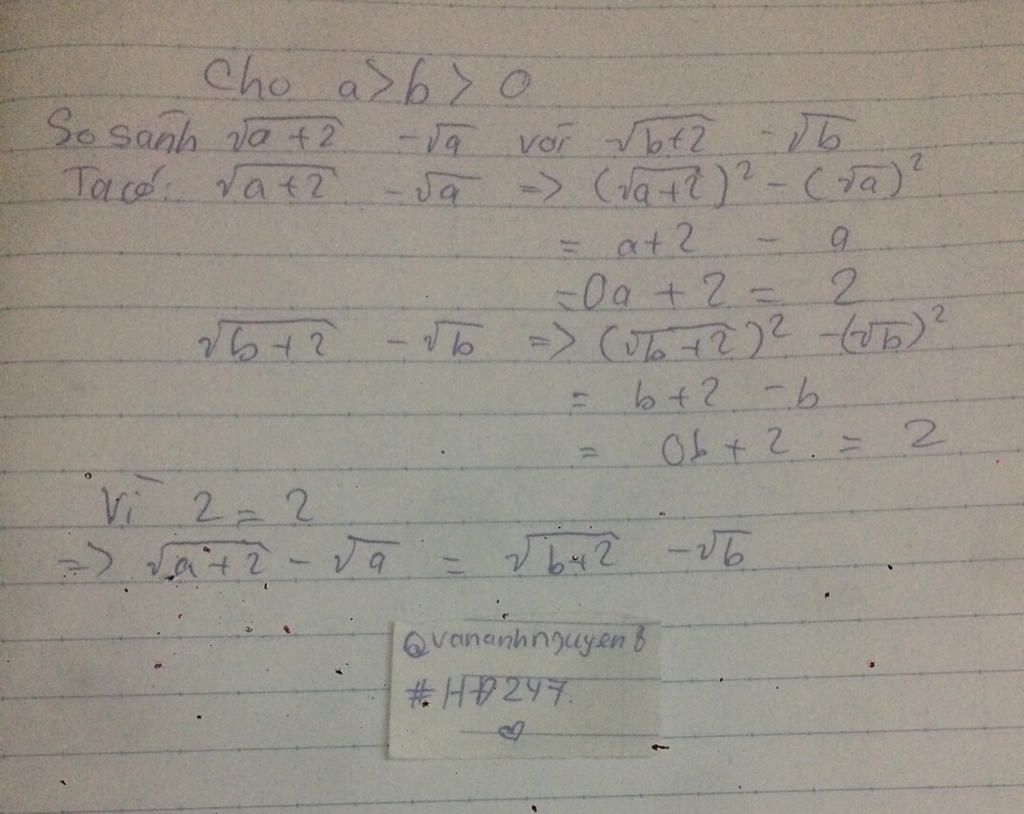 Cho a > b > 0
So sánh √(a+2) - √a với √(b+2) - √b
Ta có: √(a+2) - √a => (√(a+2))² - (√a)²
= a+2 - a
= 0a + 2 = 2
√(b+2) - √b => (√(b+2))² - (√b)²
= b+2 - b
= 0b + 2 = 2
Vì 2 = 2
=> √(a+2) - √a = √(b+2) - √b
@vananhnguyen8
#HĐ247.
♡